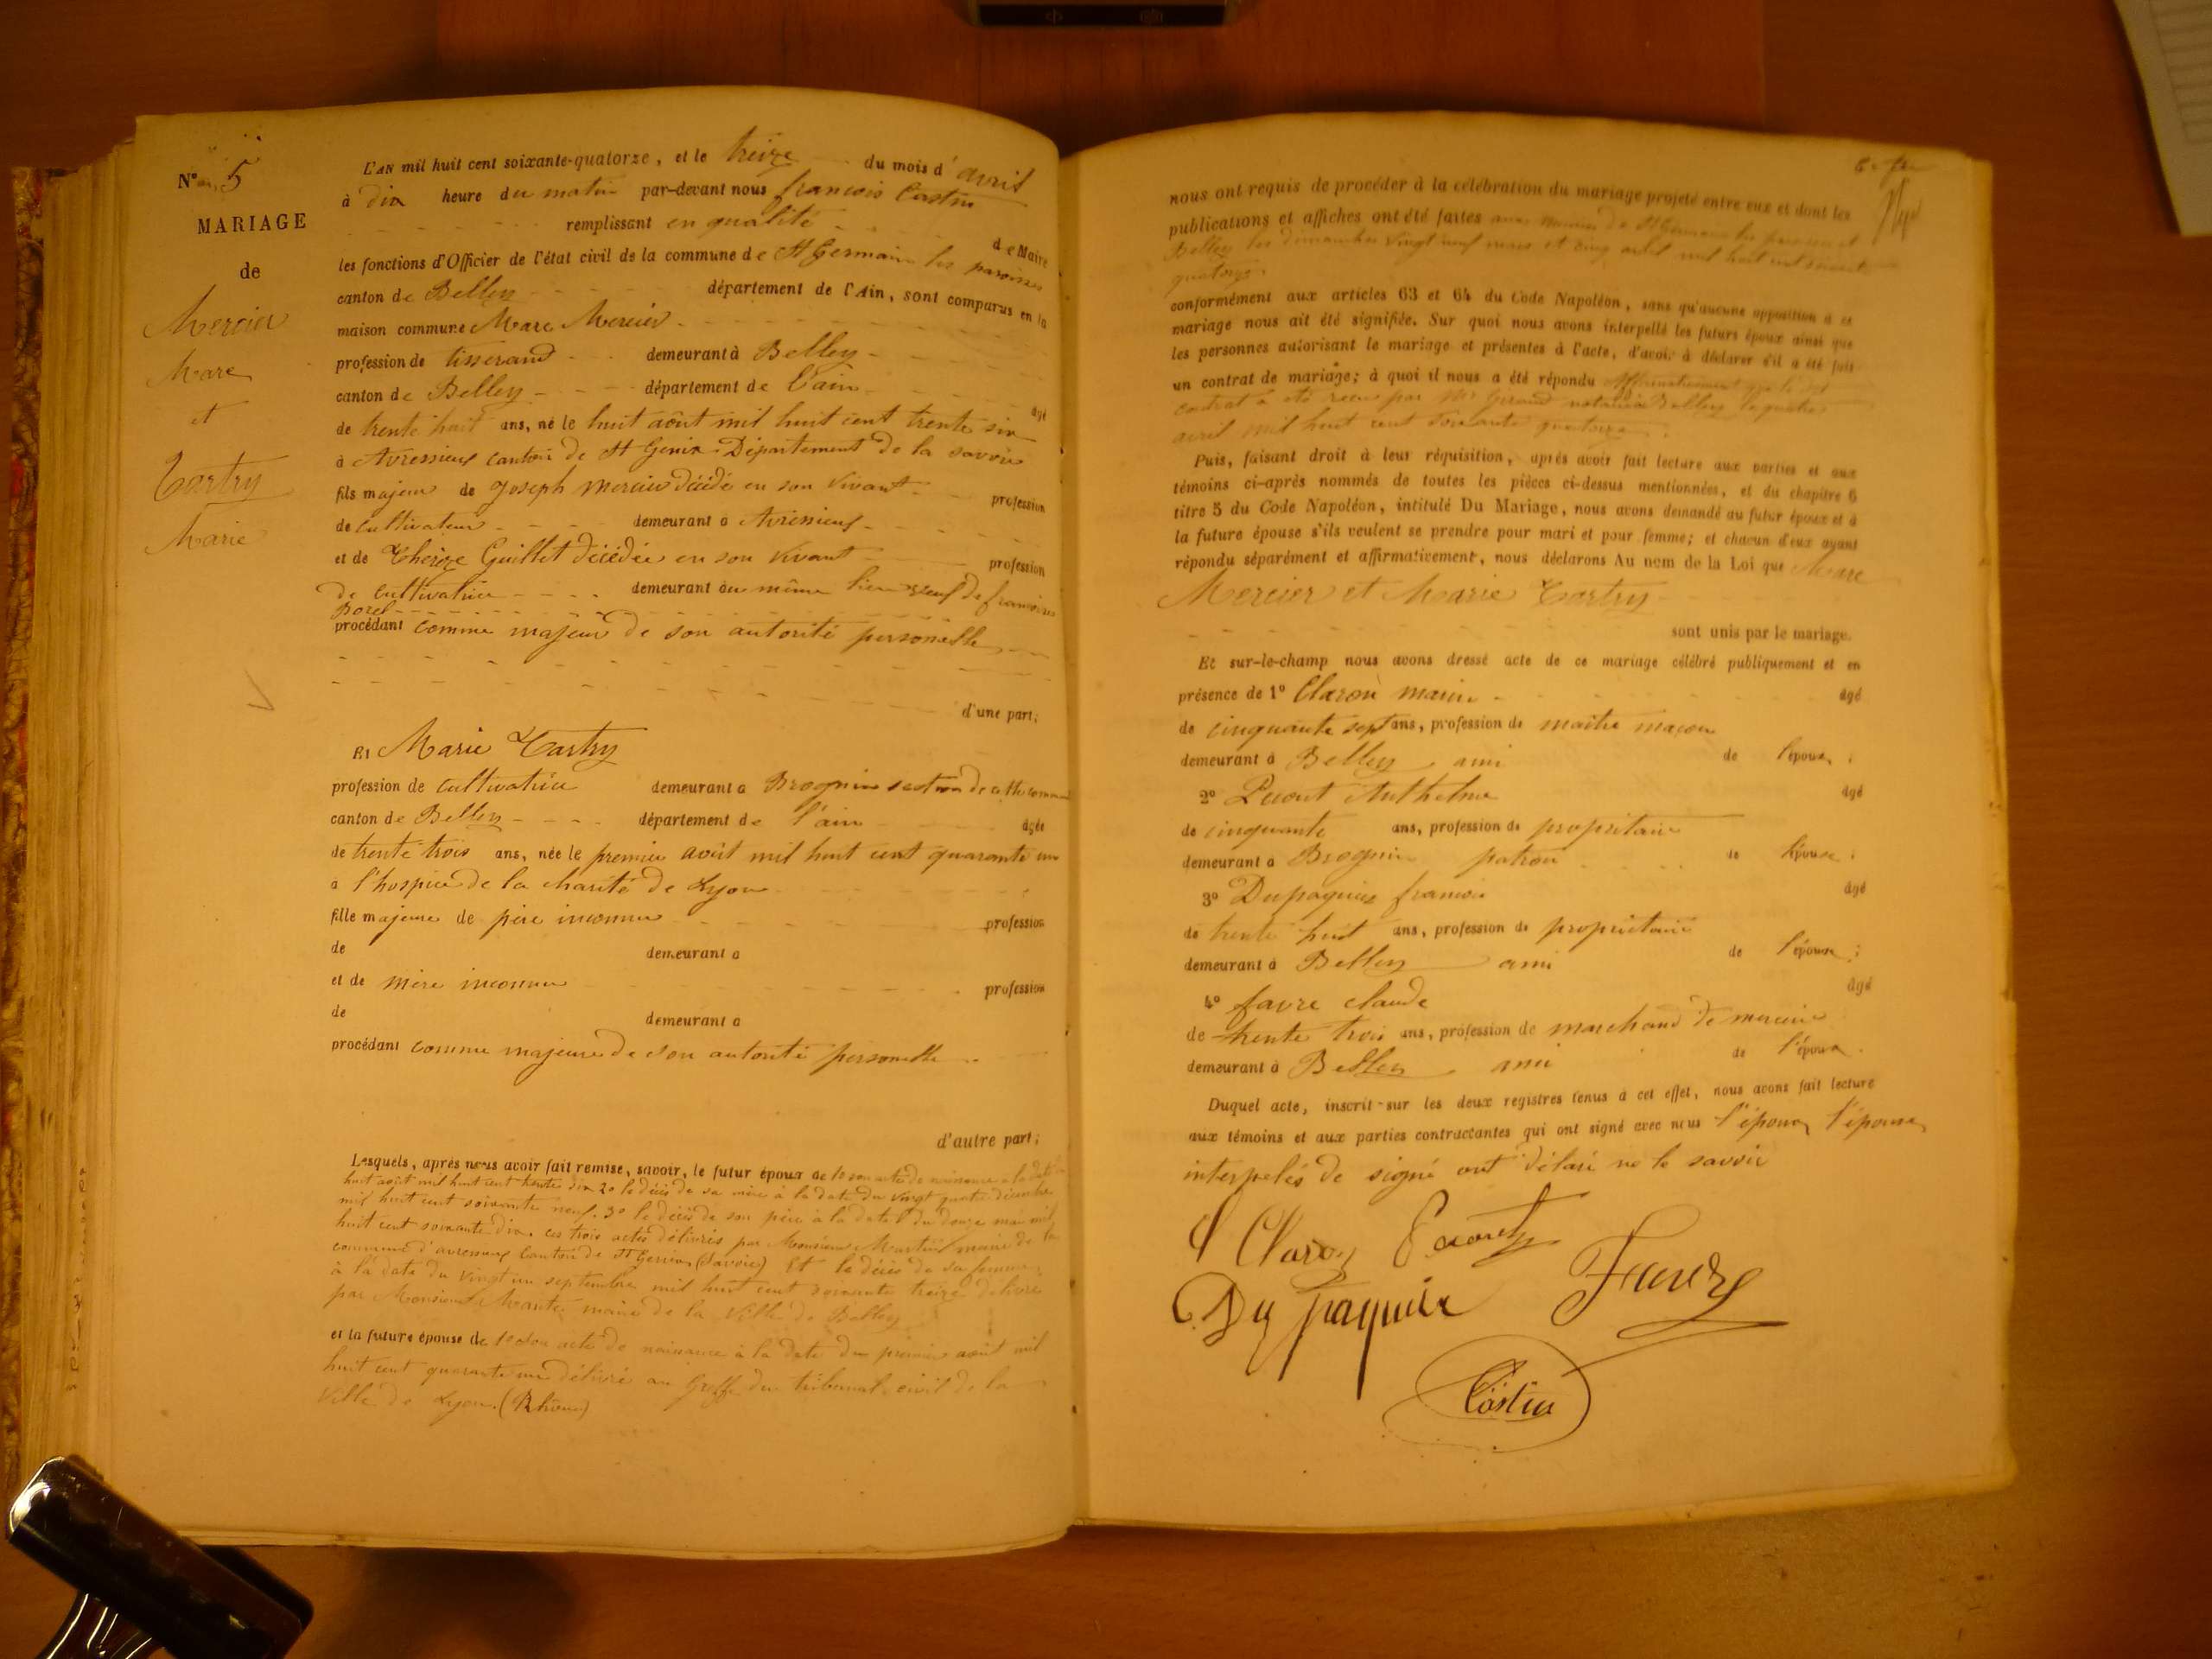 N° 5
MARIAGE
de
Mercier
Marc
et
Tartry
Marie
L'AN mil huit cent soixante-quatorze, et le treize du mois d'avril
à dix heure du matin par-devant nous françois Castin
remplissant en qualité de Maire
les fonctions d'Officier de l'état civil de la commune de St Germain les paroisses
canton de Belley département de l'Ain, sont comparus en la
maison commune Marc Mercier
profession de tisserand demeurant à Belley
canton de Belley département de l'ain âgé
de trente huit ans, né le huit août mil huit cent trente six
à Avressieux canton de St Genix Département de la savoie
fils majeur de Joseph Mercier décédé en son vivant profession
de cultivateur demeurant à Avressieux
et de Thérèze Guillet décédée en son vivant profession
de cultivatrice demeurant au même lieu veuf de françoise
Borel
procédant comme majeur de son autorité personelle
d'une part;
Et Marie Tartry
profession de cultivatrice demeurant à Brognin section de cette commune
canton de Belley département de l'ain âgée
de trente trois ans, née le premier août mil huit cent quarante un
à l'hospice de la charité de Lyon
fille majeure de père inconnu profession
de demeurant à
et de mère inconnue profession
de demeurant à
procédant comme majeure de son autorité personelle
d'autre part;
Lesquels, après nous avoir fait remise, savoir, le futur époux de 1° son acte de naissance à la date du
huit août mil huit cent trente six 2° le décès de sa mère à la date du vingt quatre décembre
mil huit cent soixante neuf. 3° le décès de son père à la date du douze mai mil
huit cent soixante dix. ces trois actes délivrés par Monsieur Martin maire de la
commune d'avressieux canton de St Genix (Savoie) Et le décès de sa femme
à la date du vingt un septembre mil huit cent soixante treize délivré
par Monsieur maire de la Ville de Belley
et la future épouse de 1° son acte de naissance à la date du premier août mil
huit cent quarante un délivré au Greffe du tribunal civil de la
Ville de Lyon (Rhône)
nous ont requis de procéder à la célébration du mariage projeté entre eux et dont les
publications et affiches ont été faites aux mairies de St Germain les paroisses et
Belley les dimanches vingt neuf mars et cinq avril mil huit cent soixante
quatorze
conformément aux articles 63 et 64 du Code Napoléon, sans qu'aucune opposition à ce
mariage nous ait été signifiée. Sur quoi nous avons interpellé les futurs époux ainsi que
les personnes autorisant le mariage et présentes à l'acte, d'avoir à déclarer s'il a été fait
un contrat de mariage; à quoi il nous a été répondu affirmativement que le dit
contrat a été recu par Mr notaire à Belley le quatre
avril mil huit cent soixante quatorze
Puis, faisant droit à leur réquisition, après avoir fait lecture aux parties et aux
témoins ci-après nommés de toutes les pièces ci-dessus mentionnées, et du chapitre 6
titre 5 du Code Napoléon, intitulé Du Mariage, nous avons demandé au futur époux et à
la future épouse s'ils veulent se prendre pour mari et pour femme; et chacun d'eux ayant
répondu séparément et affirmativement, nous déclarons Au nom de la Loi que Marc
Mercier et Marie Tartry
sont unis par le mariage.
Et sur-le-champ nous avons dressé acte de ce mariage célébré publiquement et en
présence de 1° Claron âgé
de cinquante sept ans, profession de maître maçon
demeurant à Belley ami de l'époux ;
2° Anthelme âgé
de cinquante ans, profession de propritaire
demeurant à Brognin patron de l'épouse ;
3° Dupaquier francois âgé
de trente huit ans, profession de propriétaire
demeurant à Belley ami de l'épouse ;
4° favre claude âgé
de trente trois ans, profession de marchand de
demeurant à Belley ami de l'époux.
Duquel acte, inscrit sur les deux registres tenus à cet effet, nous avons fait lecture
aux témoins et aux parties contractantes qui ont signé avec nous l'époux, l'épouse
interpelés de signé ont délaré ne le savoir
Claron
Dupaquier Favre
Castin